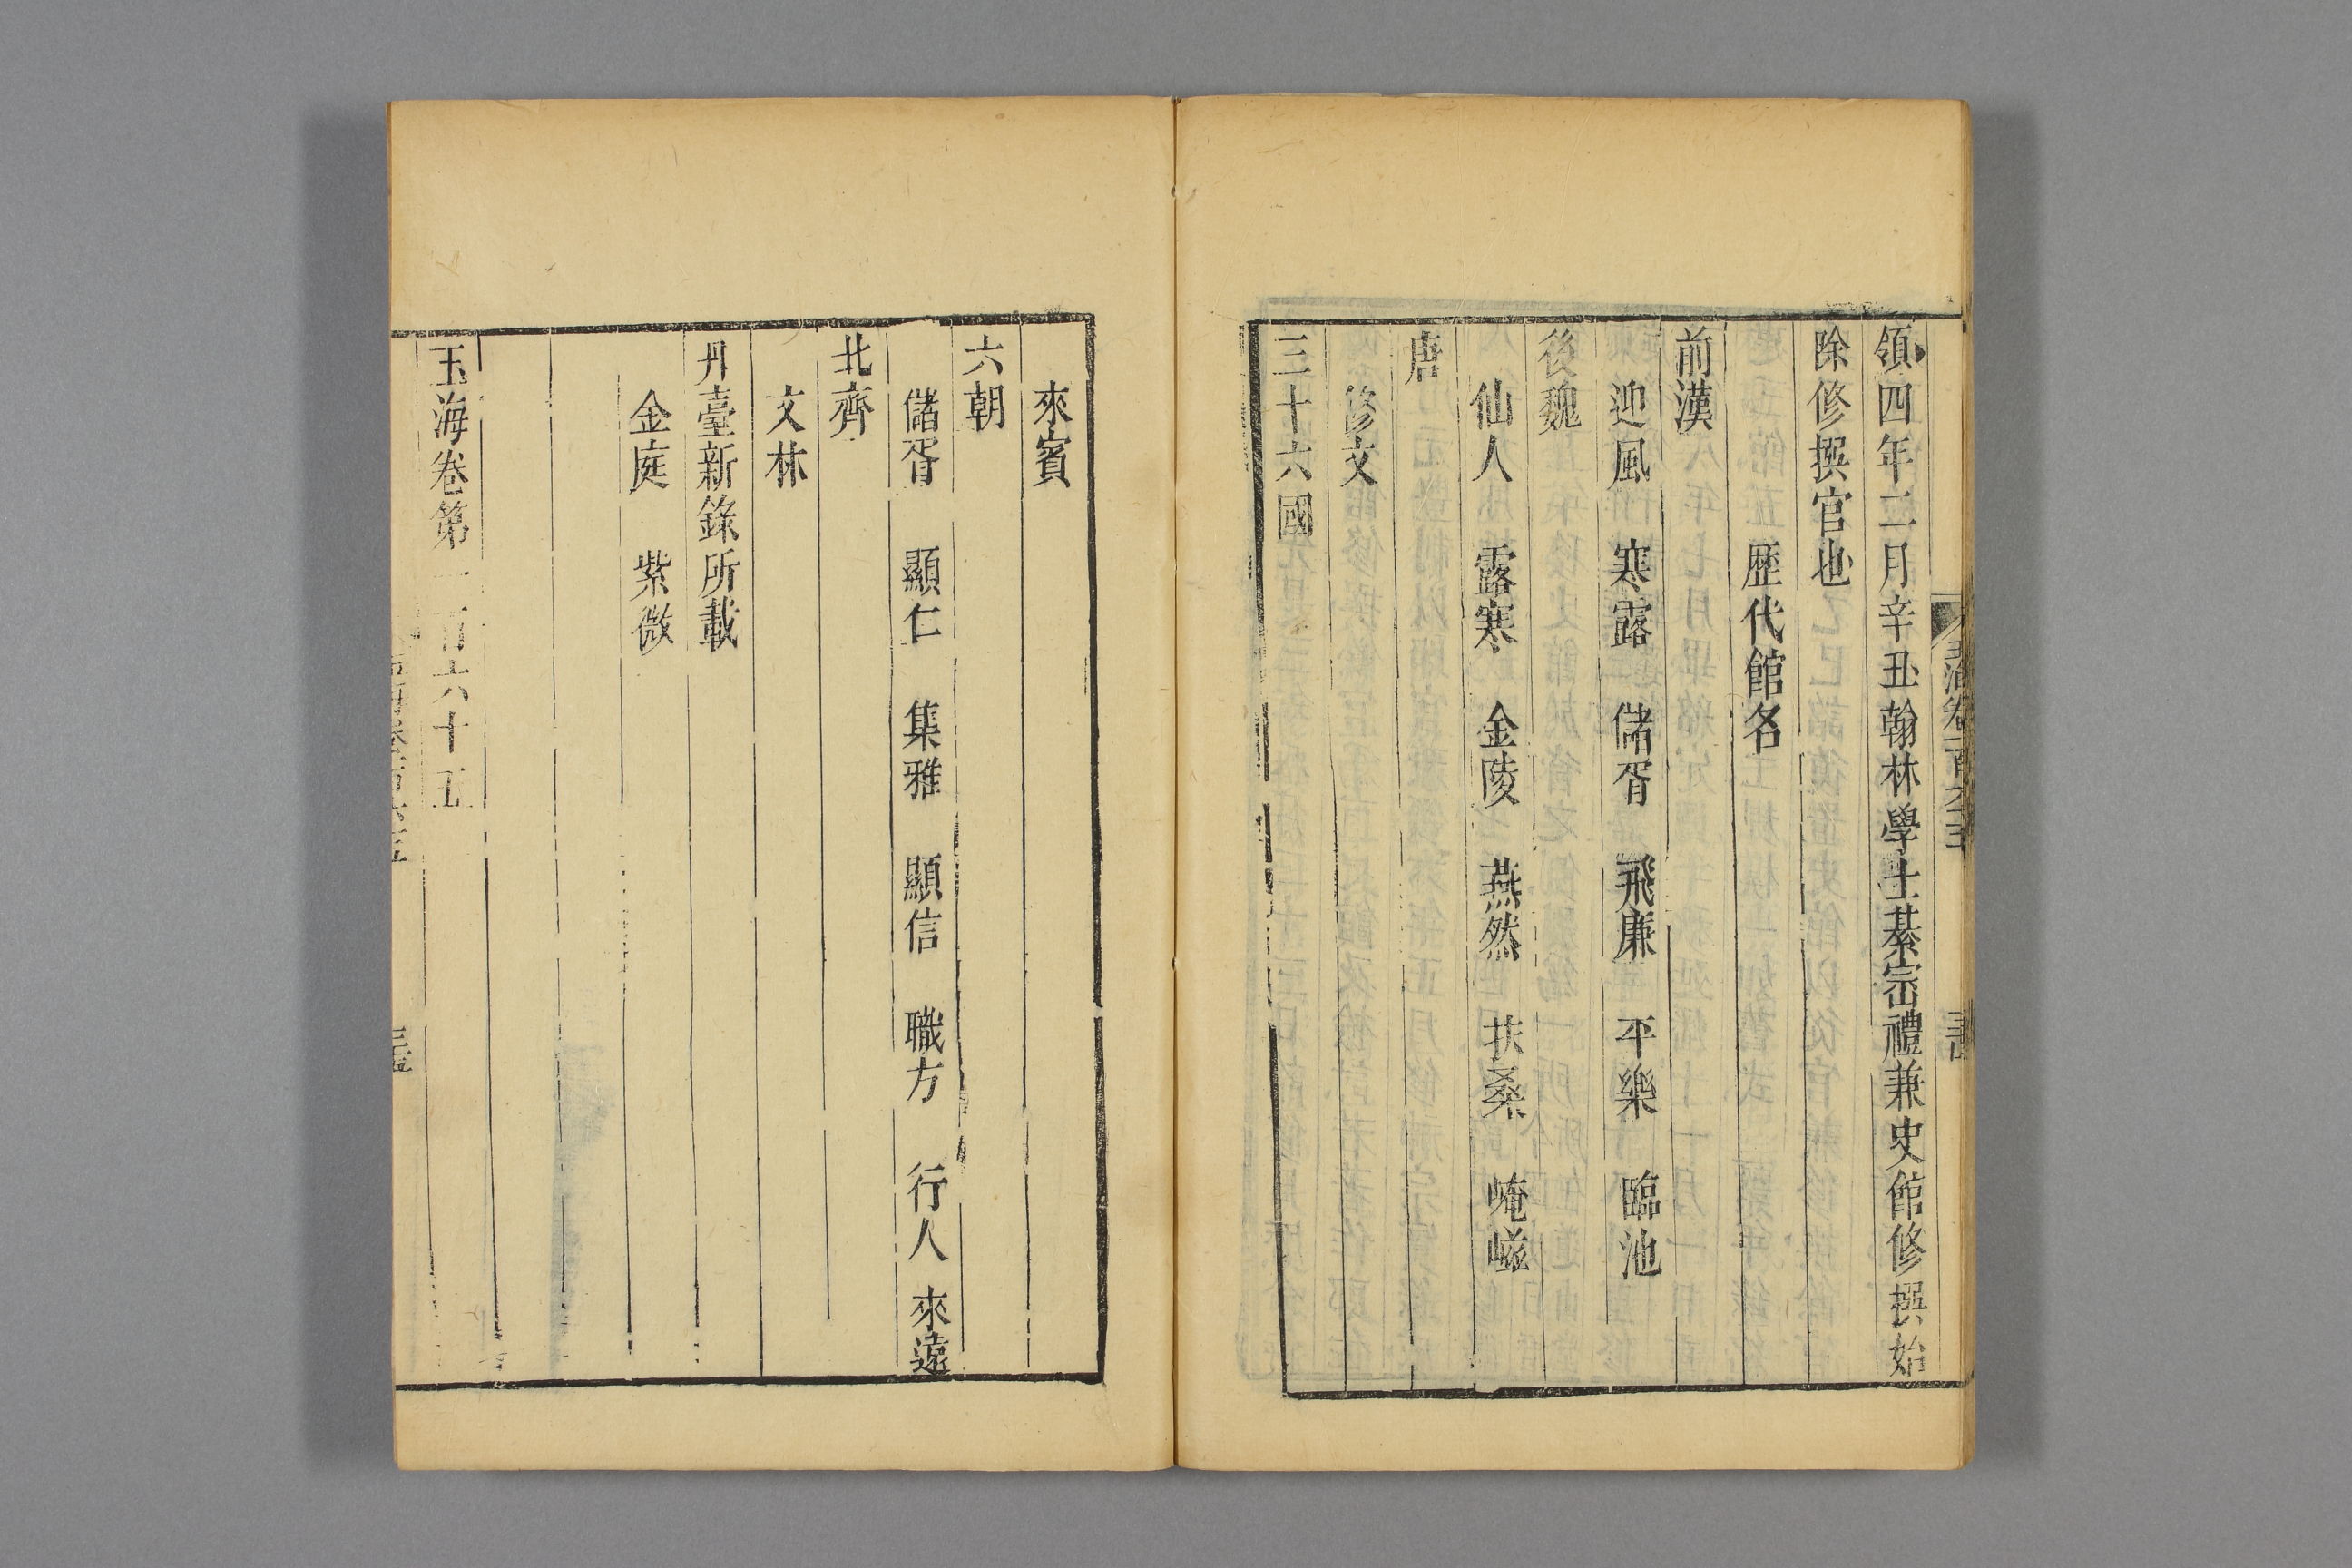 領四年二月辛丑翰林學士綦宗禮兼史館修撰始
除修撰官也
歷代館名
前漢
迎風　寒露　儲胥　飛廉　平樂　臨池
後魏
仙人　露寒　金陵　燕然　扶桑　崦嵫
唐
修文
三十六國
來賓
六朝
儲胥　顯仁　集雅　顯信　職方　行人　來遠
北齊
文林
丹臺新錄所載
金庭　紫微
玉海卷第一百六十五